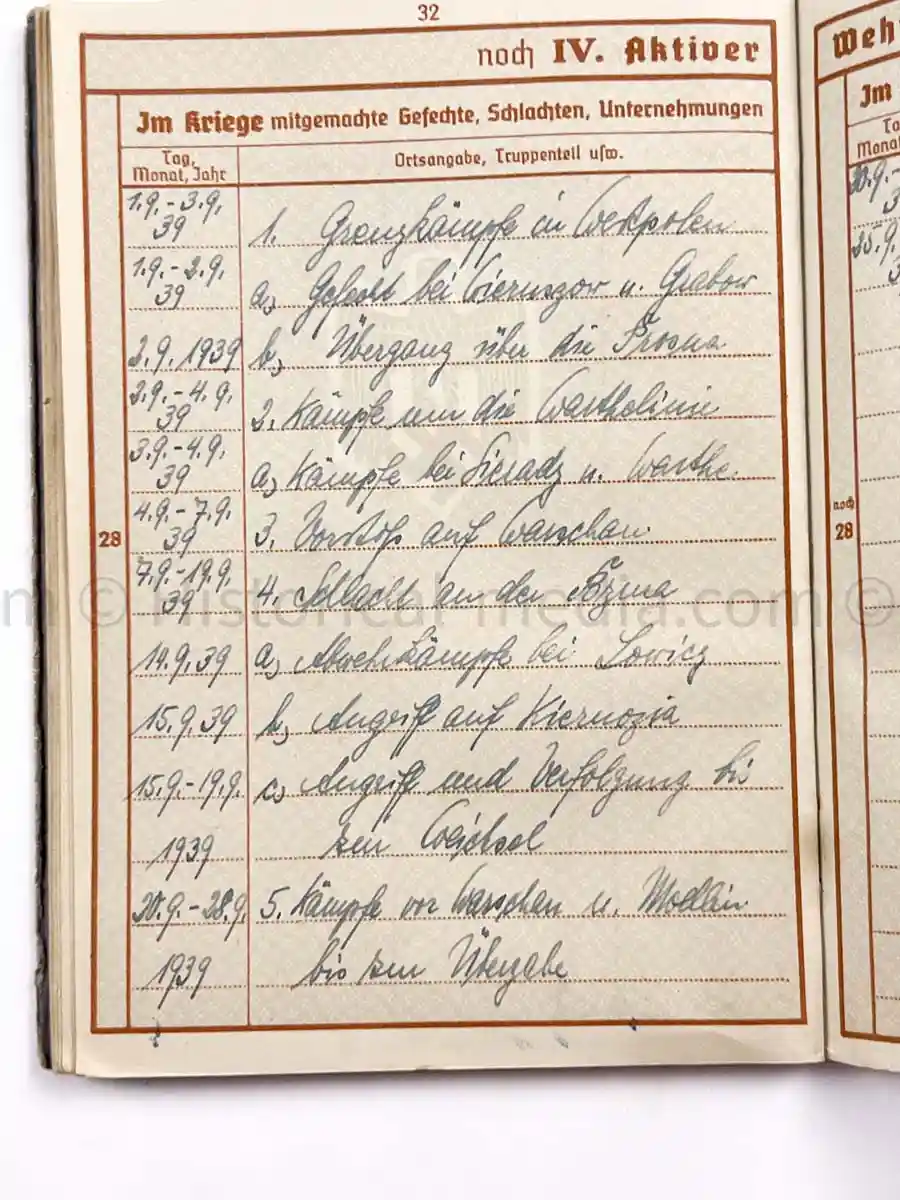 32
noch IV. Aktiver
Im Kriege mitgemachte Gefechte, Schlachten, Unternehmungen
Tag, Monat, Jahr
Ortsangabe, Truppenteil usw.
1.9. - 3.9. 39 1. Grenzkämpfe in Westpolen
1.9. - 2.9. 39 a) Gefecht bei Wieruszow u. Grabow
2.9.1939 b) Übergang über die Prosna
2.9. - 4.9. 39 2. Kämpfe um die Warthelinie
3.9. - 4.9. 39 a) Kämpfe bei Sieradz u. Warthe.
4.9. - 7.9. 39 3. Vorstoß auf Warschau
7.9. - 19.9. 39 4. Schlacht an der Bzura
14.9.39 a) Abwehrkämpfe bei Lowicz
15.9.39 b) Angriff auf Kiernozia
15.9. - 19.9. c) Angriff und Verfolgung bis
1939 zur Weichsel
20.9. - 28.9. 5. Kämpfe vor Warschau u. Modlin
1939 bis zur Übergabe
28
Weh
Im
Ta
Monat
30.9. -
3
25.9.
3
noch
28
m © historical-media.com ©